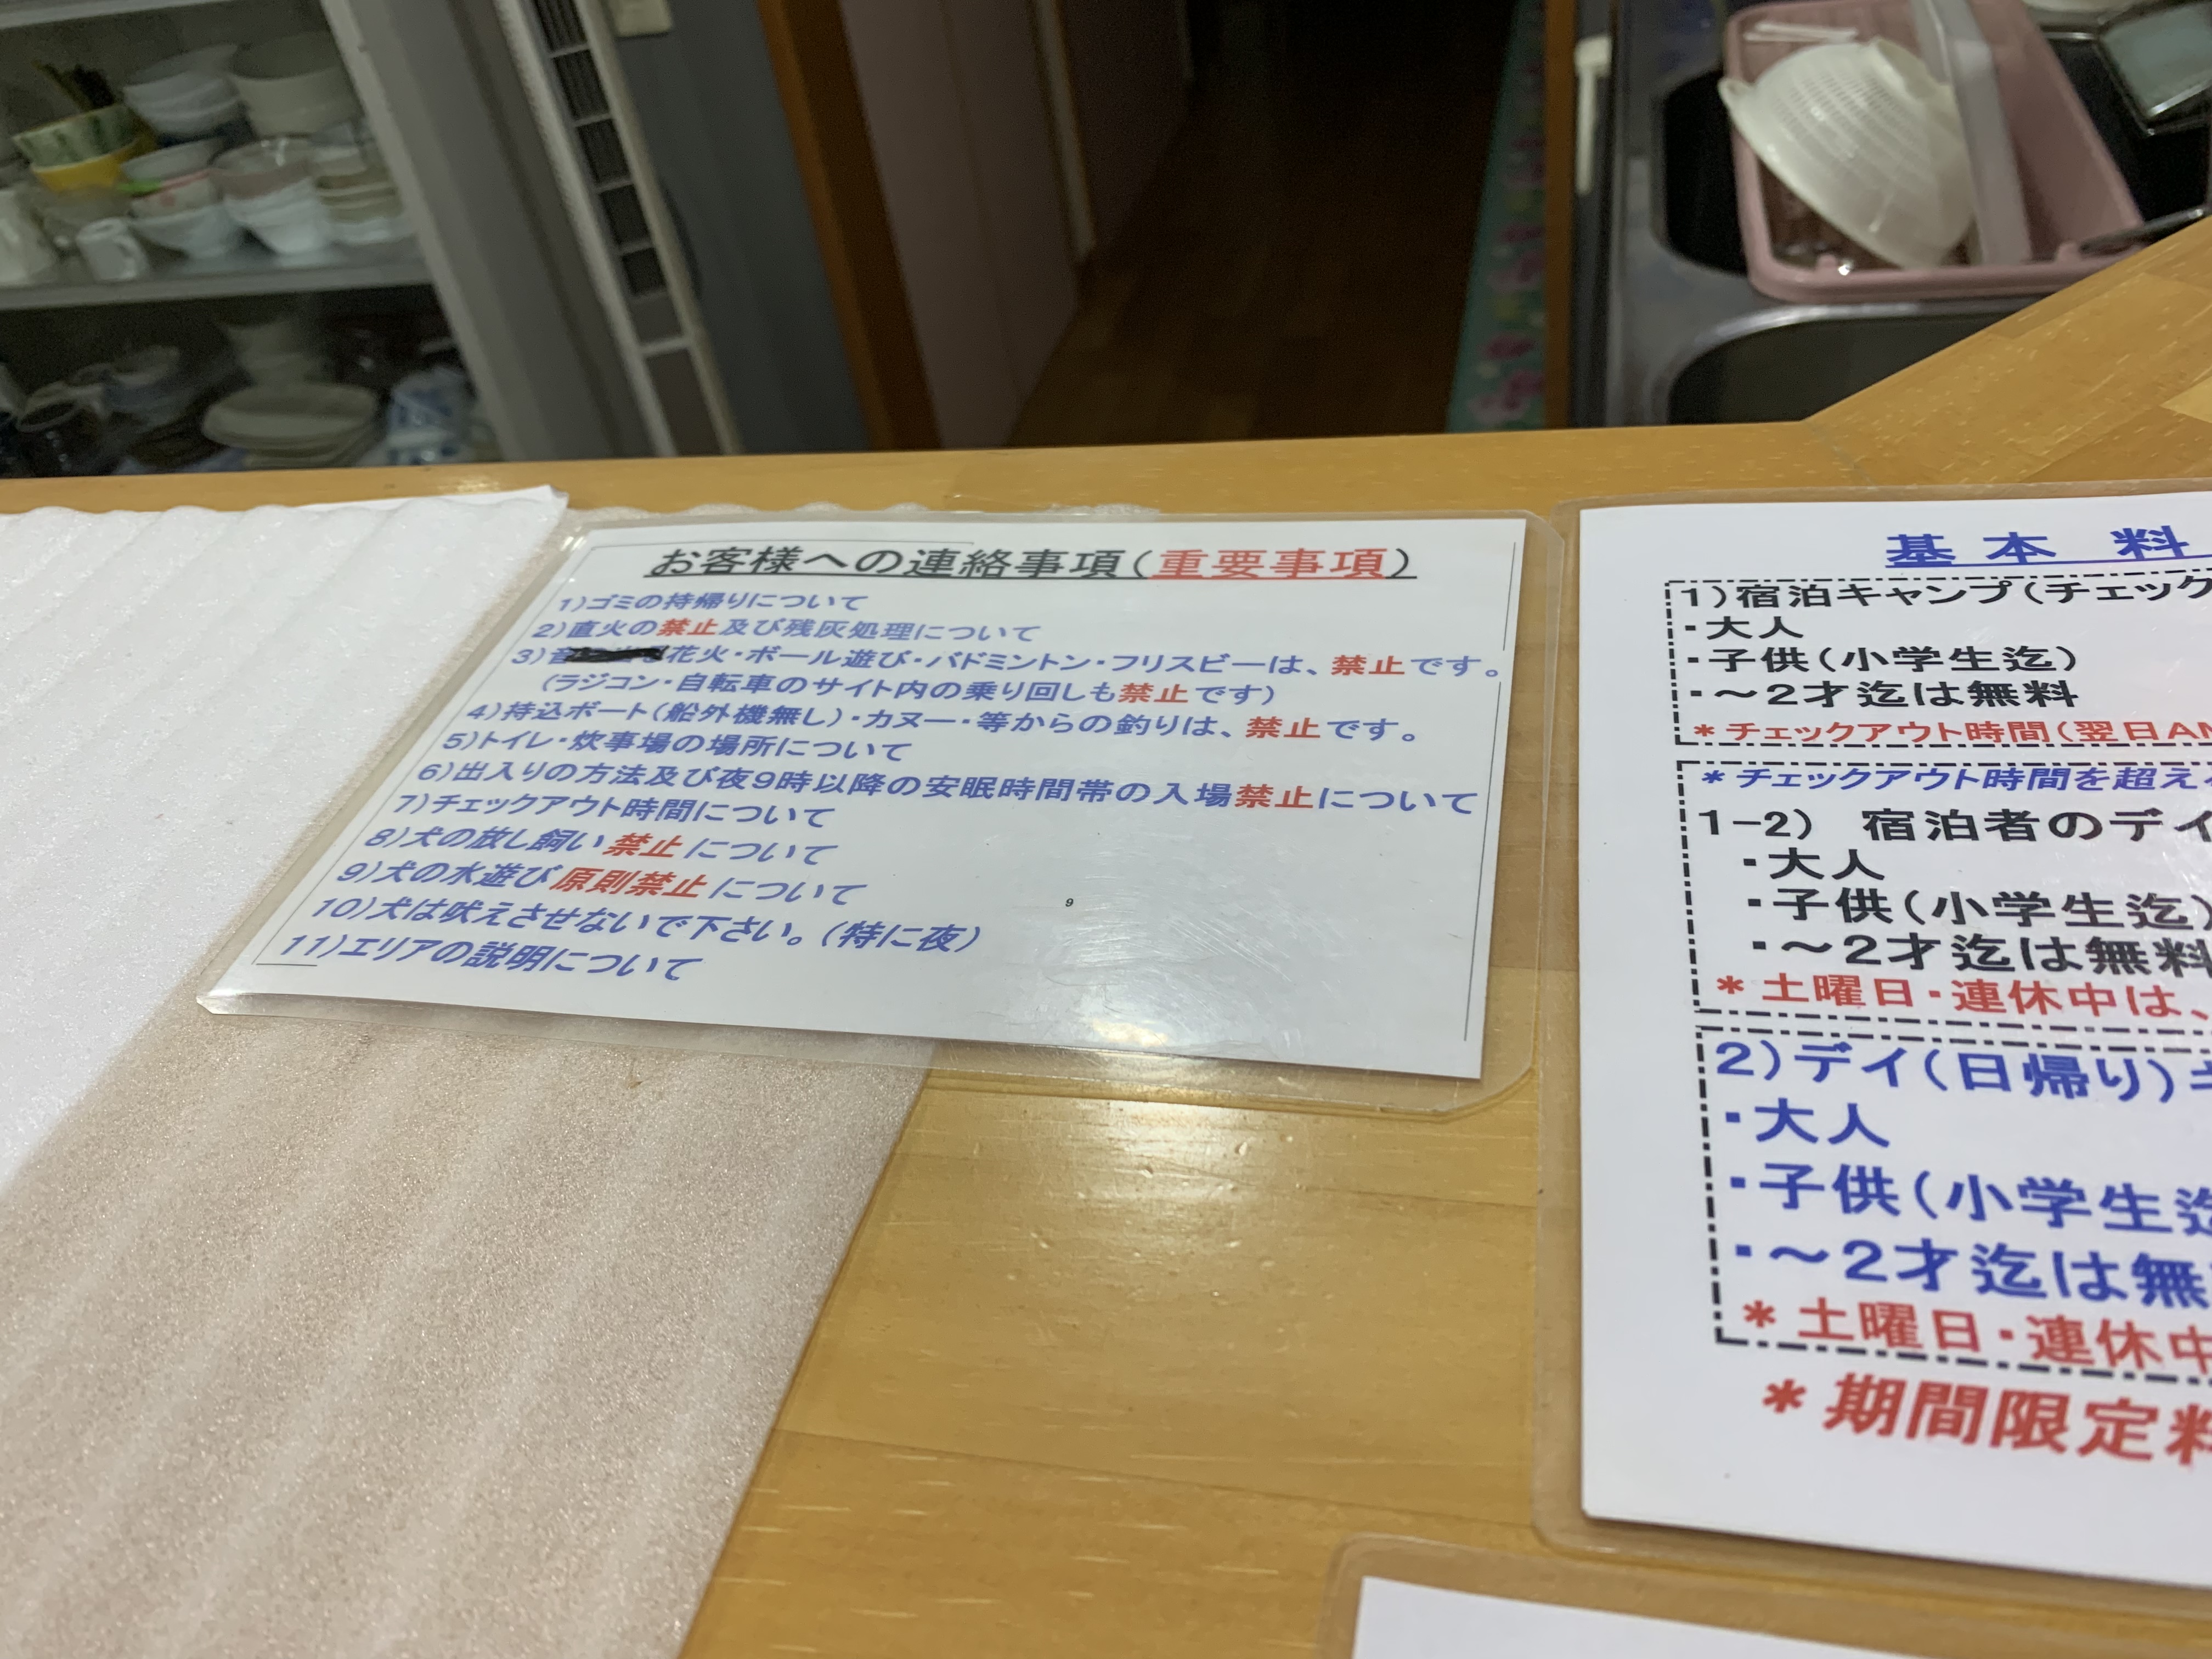 お客様への連絡事項(重要事項)
1)ゴミの持帰りについて
2)直火の禁止及び残灰処理について
3)音 花火・ボール遊び・バドミントン・フリスビーは、禁止です。
(ラジコン・自転車のサイト内の乗り回しも禁止です)
4)持込ボート(船外機無し)・カヌー・等からの釣りは、禁止です。
5)トイレ・炊事場の場所について
6)出入りの方法及び夜9時以降の安眠時間帯の入場禁止について
7)チェックアウト時間について
8)犬の放し飼い禁止について
9)犬の水遊び原則禁止について
10)犬は吠えさせないで下さい。(特に夜)
11)エリアの説明について
9
基本料
1)宿泊キャンプ(チェック
・大人
・子供(小学生迄)
・~2才迄は無料
*チェックアウト時間(翌日AM
*チェックアウト時間を超え
1-2) 宿泊者のデイ
・大人
・子供(小学生迄)
・~2才迄は無料
*土曜日・連休中は、
2)デイ(日帰り)キ
・大人
・子供(小学生迄
・~2才迄は無料
*土曜日・連休中
*期間限定料